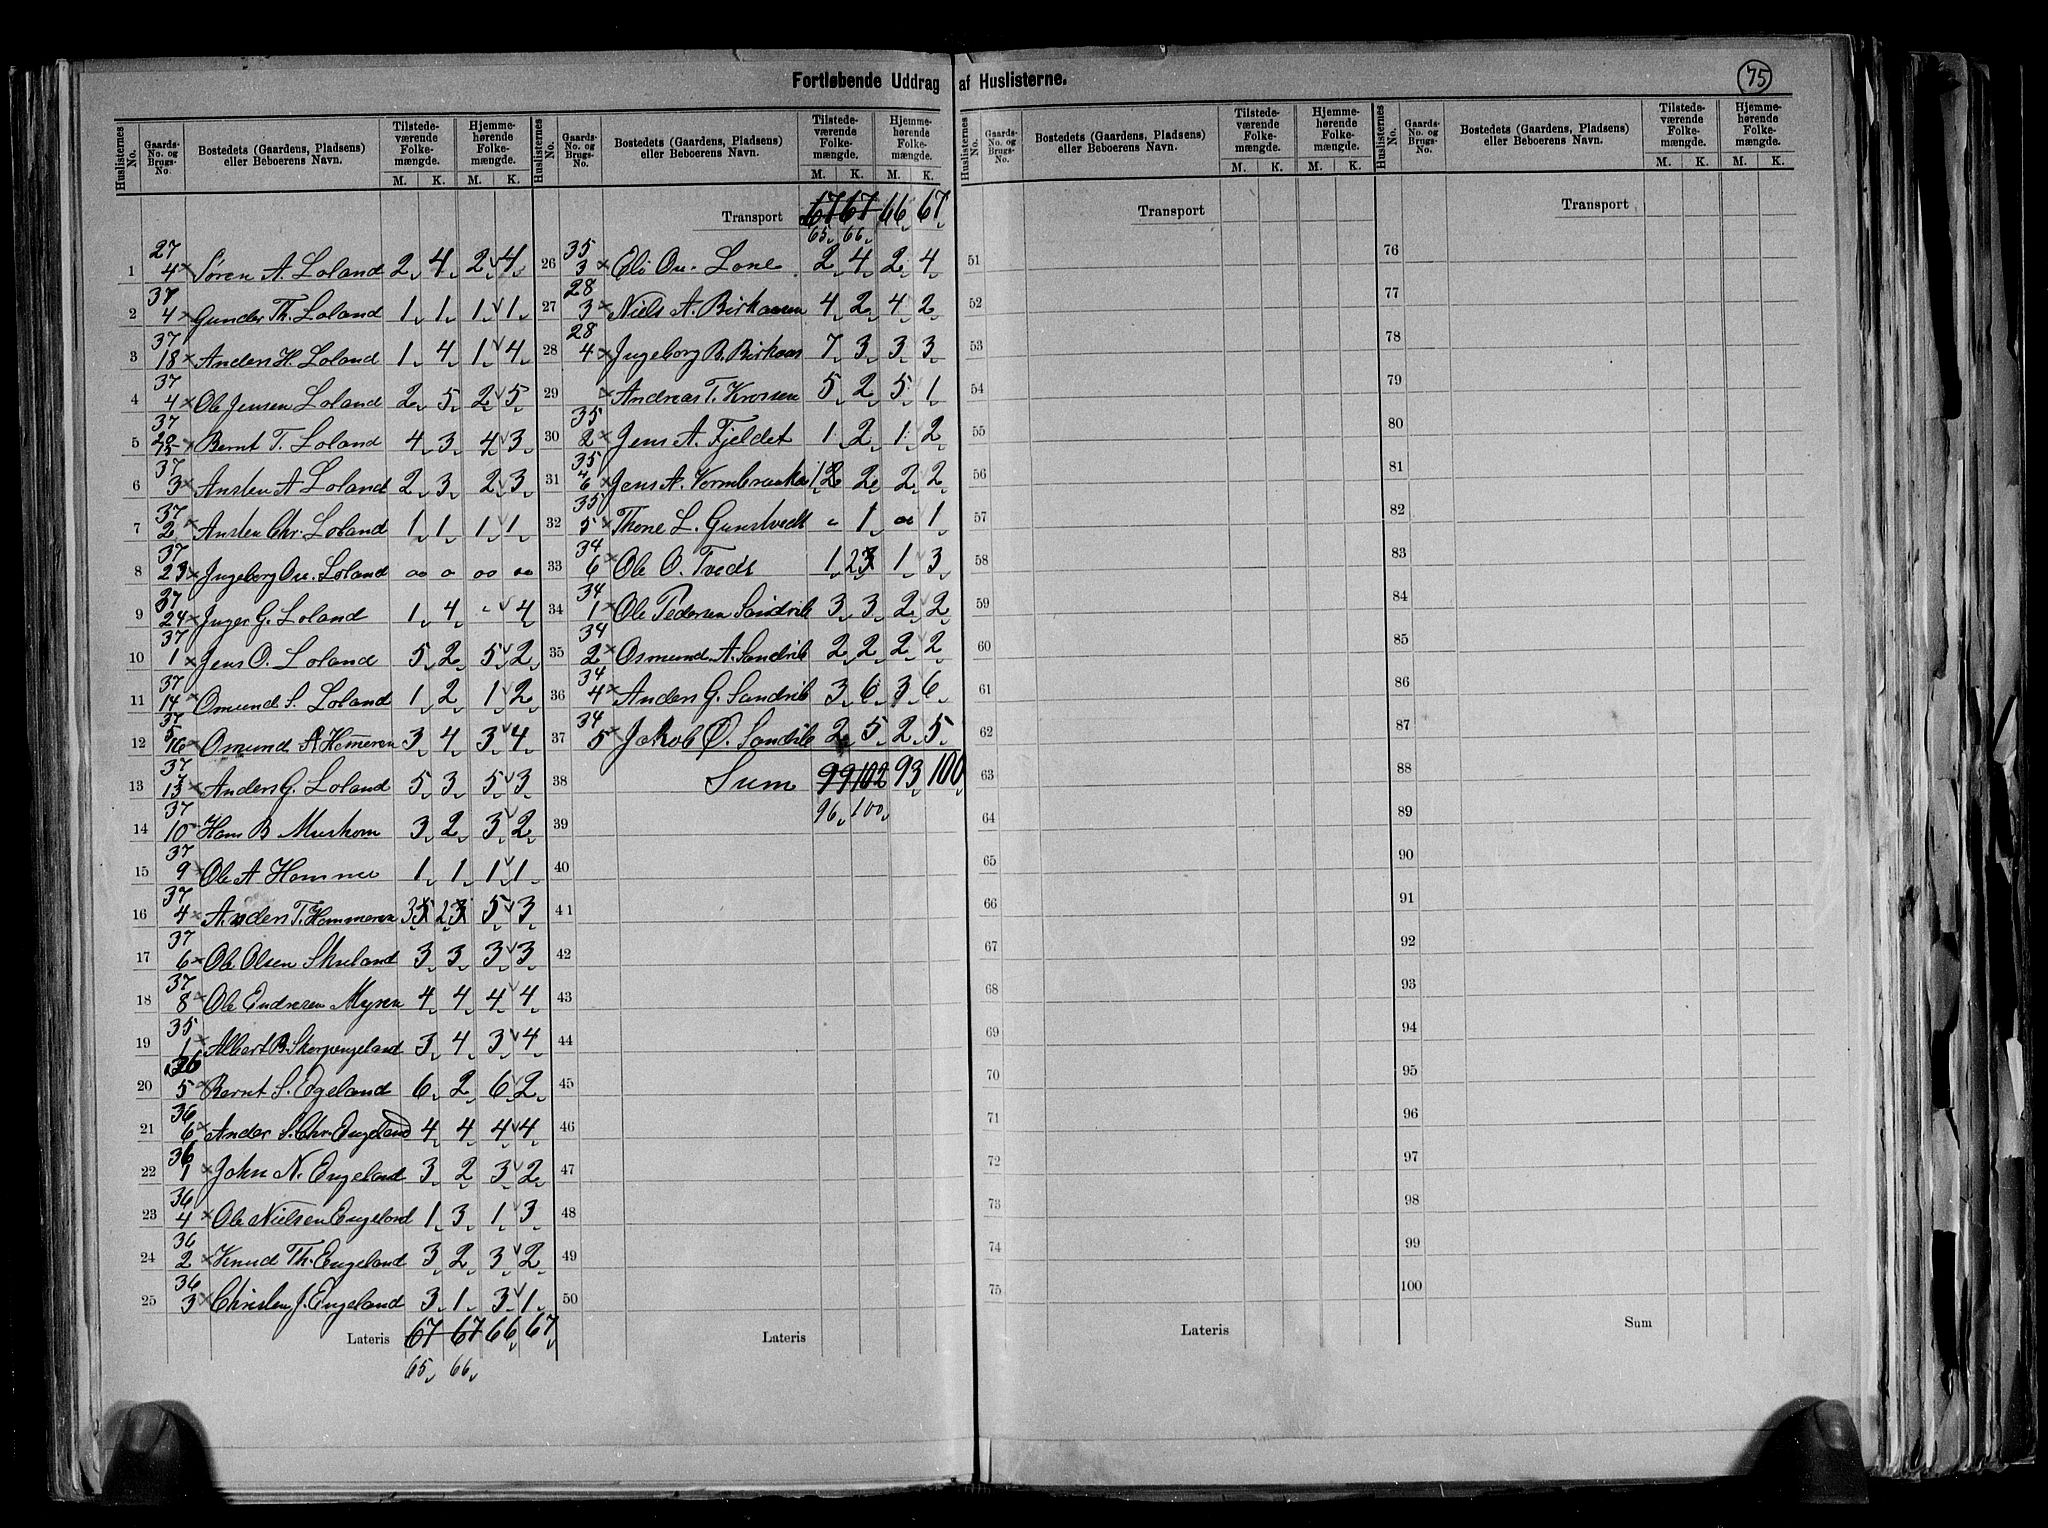 Fortløbende Uddrag af Huslisterne.
75
Huslisternes No. Gaards-No. og Brugs-No. Bostedets (Gaardens, Pladsens) eller Beboerens Navn. Tilstede-værende Folke-mængde. M. K. Hjemme-hørende Folke-mængde. M. K.
Huslisternes No. Gaards-No. og Brugs-No. Bostedets (Gaardens, Pladsens) eller Beboerens Navn. Tilstede-værende Folke-mængde. M. K. Hjemme-hørende Folke-mængde. M. K.
Huslisternes No. Gaards-No. og Brugs-No. Bostedets (Gaardens, Pladsens) eller Beboerens Navn. Tilstede-værende Folke-mængde. M. K. Hjemme-hørende Folke-mængde. M. K.
Huslisternes No. Gaards-No. og Brugs-No. Bostedets (Gaardens, Pladsens) eller Beboerens Navn. Tilstede-værende Folke-mængde. M. K. Hjemme-hørende Folke-mængde. M. K.
1 27 4 × Søren A. Loland 2 4 2 4
2 37 4 × Gunder Th. Loland 1 1 1 1
3 37 18 × Anders H. Loland 1 4 1 4
4 37 4 × Ole Jensen Loland 2 5 2 5
5 37 × Bernt T. Loland 4 3 4 3
6 37 3 × Ansten A Loland 2 3 2 3
7 37 2 × Ansten Chr. Loland 1 1 1 1
8 37 23 × Ingeborg Loland
9 37 24 × Inger G. Loland 1 4 - 4
10 37 1 × Jens O. Loland 5 2 5 2
11 37 14 × Omund S. Loland 1 2 1 2
12 37 × Omund A Homeren 3 4 3 4
13 37 × Anders G. Loland 5 3 5 3
14 37 10 × Hans B 3 2 3 2
15 37 9 × Ole A Homme 1 1 1 1
16 37 4 × Anders T. Hommeren 35 23 5 3
17 37 6 × Ole Olsen Skreland 3 3 3 3
18 37 8 × Ole Endresen Myren 4 4 4 4
19 35 1 × Albert B. Skorpengeland 3 4 3 4
20 36 5 × Bernt S. Egeland 6 2 6 2
21 36 6 × Ander S. Chr. Engeland 4 4 4 4
22 36 1 × John N. Engeland 3 2 3 2
23 36 4 × Ole Nielsen Engeland 1 3 1 3
24 36 2 × Knud Th. Engeland 3 2 3 2
25 36 3 × Christen J. Engeland 3 1 3 1
Lateris 67 67 66 67
65 66
Transport 67 67 66 67
65 66
26 35 3 × Eli Lone 2 4 2 4
27 28 3 × Niels A. Birkaasen 4 2 4 2
28 28 4 × Ingeborg B. Birkaas 7 3 3 3
29 × Andreas T. Krossen 5 2 5 1
30 35 2 × Jens A. Fjeldet 1 2 1 2
31 35 × Jens A. 12 2 2 2
32 35 5 × Thone L. Gunstvedt 1 1
33 34 6 × Ole O. Tvedt 1 23 1 3
34 34 1 × Ole Pedersen Sandvik 3 3 2 2
35 34 2 × Osmund A. Sandvik 2 2 2 2
36 34 4 × Anders G. Sandvik 3 6 3 6
37 34 5 × Jakob O. Sandvik 2 5 2 5
38 Sum 99 102 93 100
96 100
39
40
41
42
43
44
45
46
47
48
49
50
Lateris
Transport
51
52
53
54
55
56
57
58
59
60
61
62
63
64
65
66
67
68
69
70
71
72
73
74
75
Lateris
Transport
76
77
78
79
80
81
82
83
84
85
86
87
88
89
90
91
92
93
94
95
96
97
98
99
100
Sum